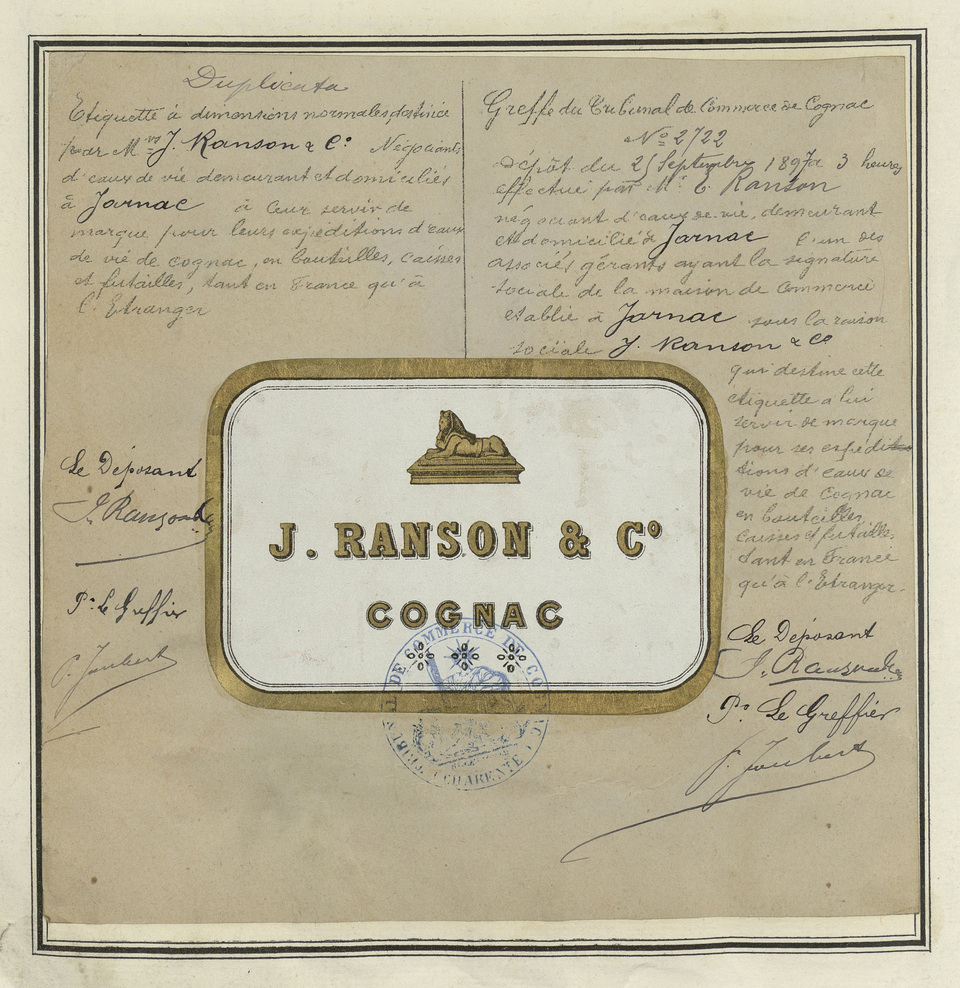 Duplicata
Etiquette à dimensions normales, destinée
par Mrs J. Ranson & Co. Négociants
d'eaux de vie demeurant et domiciliés
à Jarnac à leur servir de
marque pour leurs expéditions d'eaux
de vie de Cognac, en bouteilles, caisses
et futailles, tant en France qu'à
l'Etranger
Le Déposant
J. Ranson & Co
Pr. Le Greffier
P. Joubert
Greffe du Tribunal de Commerce de Cognac
No 2722
Dépôt du 25 Septembre 1897 à 3 heures
effectué par Mr. E. Ranson
négociant d'eaux de vie, demeurant
et domicilié à Jarnac l'un des
associés gérants ayant la signature
sociale de la maison de Commerce
établie à Jarnac sous la raison
sociale J. Ranson & Co
qui destine cette
étiquette à lui
servir de marque
pour ses expédi
tions d'eaux de
vie de Cognac
en bouteilles,
caisses et futailles,
tant en France
qu'à l'Etranger.
Le Déposant
J. Ranson & Co
Pr. Le Greffier
P. Joubert
J. RANSON & Co
COGNAC
TRIBUNAL DE COMMERCE DE COGNAC
(CHARENTE)